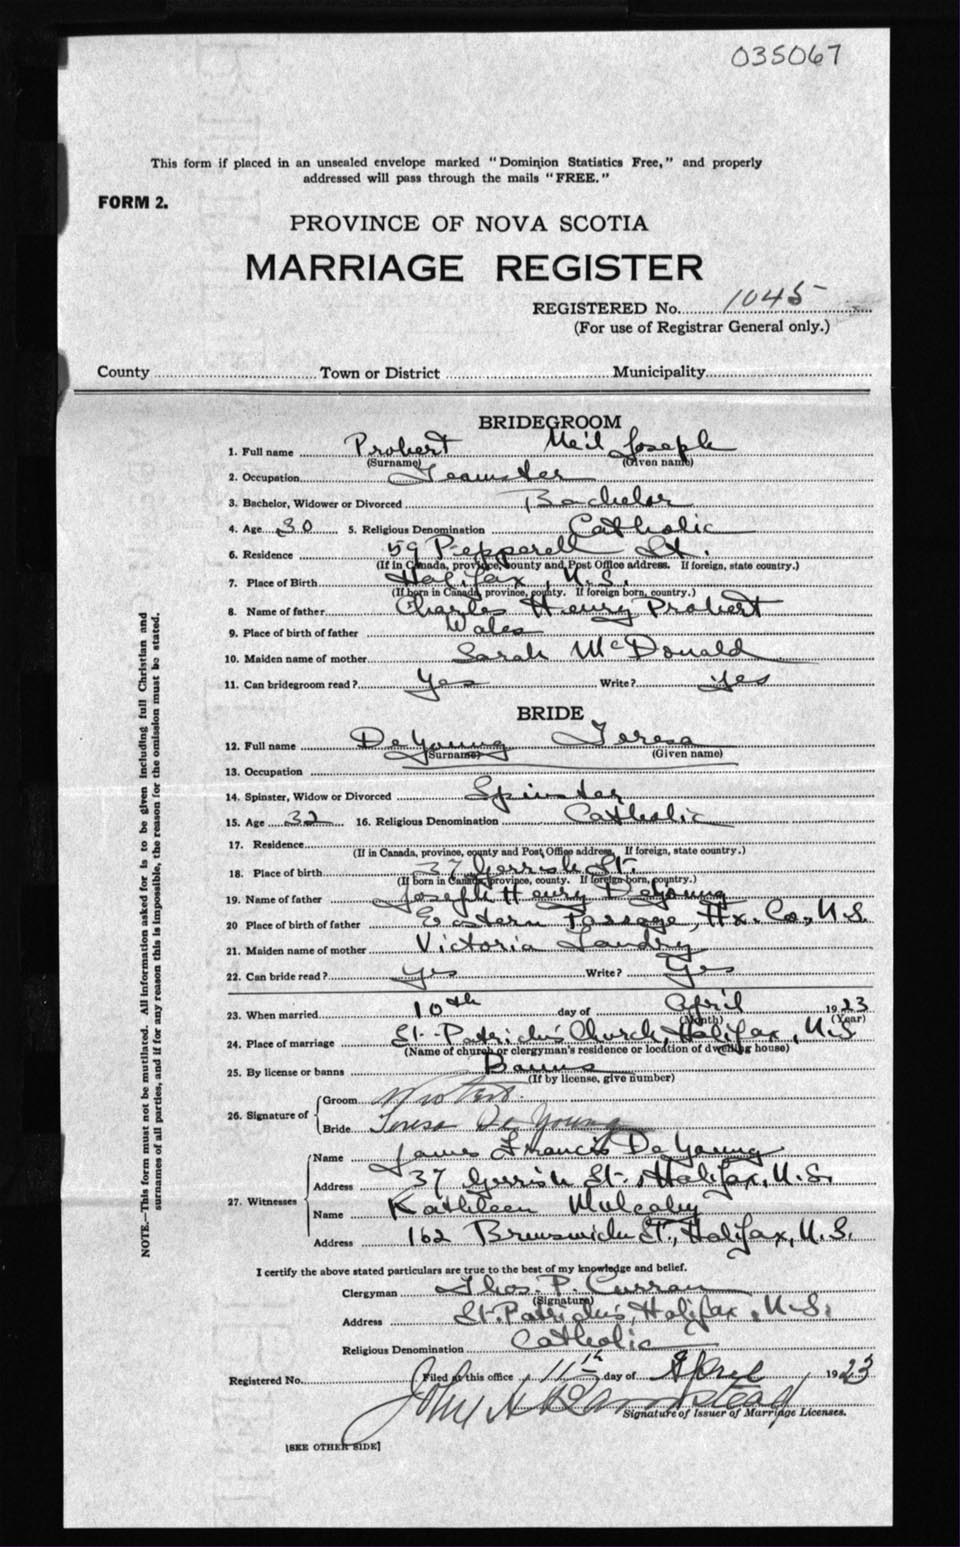 035067
This form if placed in an unsealed envelope marked "Dominion Statistics Free," and properly
addressed will pass through the mails "FREE."
FORM 2.
PROVINCE OF NOVA SCOTIA
MARRIAGE REGISTER
REGISTERED No. 1045
(For use of Registrar General only.)
County Town or District Municipality
BRIDEGROOM
1. Full name Probert Neil Joseph
(Surname) (Given name)
2. Occupation Teamster
3. Bachelor, Widower or Divorced Bachelor
4. Age 30 5. Religious Denomination Catholic
6. Residence 59 Pepperell St.
(If in Canada, province, county and Post Office address. If foreign, state country.)
7. Place of Birth Halifax, N.S.
(If born in Canada, province, county. If foreign born, country.)
8. Name of father Charles Henry Probert
9. Place of birth of father Wales
10. Maiden name of mother Sarah McDonald
11. Can bridegroom read? Yes Write? Yes
BRIDE
12. Full name DeYoung Teresa
(Surname) (Given name)
13. Occupation
14. Spinster, Widow or Divorced Spinster
15. Age 32 16. Religious Denomination Catholic
17. Residence
(If in Canada, province, county and Post Office address, If foreign, state country.)
18. Place of birth 37 Gerrish St.
(If born in Canada, province, county. If foreign-born, country.)
19. Name of father Joseph Henry DeYoung
20 Place of birth of father Eastern Passage, Hx. Co., N.S.
21. Maiden name of mother Victoria Landry
22. Can bride read? Yes Write? Yes
23. When married 10th day of April 1923
(Month) (Year)
24. Place of marriage St. Patrick's Church, Halifax, N.S
(Name of church or clergyman's residence or location of dwelling house)
25. By license or banns Banns
(If by license, give number)
26. Signature of Groom N Probert.
Bride Teresa De Young
27. Witnesses Name James Francis DeYoung
Address 37 Gerrish St. Halifax, N.S.
Name Kathleen Mulcahy
Address 162 Brunswick St., Halifax, N.S.
I certify the above stated particulars are true to the best of my knowledge and belief.
Clergyman Thos. P. Curran
(Signature)
Address St. Patrick's, Halifax, N.S.
Religious Denomination Catholic
Registered No. Filed at this office 11th day of April 1923
John A
Signature of Issuer of Marriage Licenses.
[SEE OTHER SIDE]
NOTE.—This form must not be mutilated. All information asked for is to be given including full Christian and
surnames of all parties, and if for any reason this is impossible, the reason for the omission must be stated.